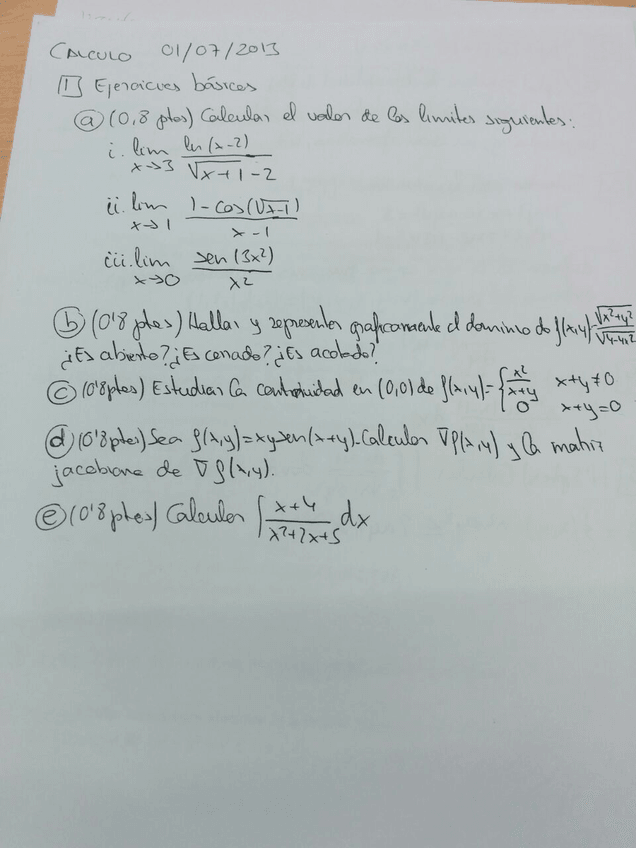 CALCULO 01/07/2013
1 Ejercicios básicos
a (0,8 ptos) Calcular el valor de los limites siguientes:
i. lim x→3 ln(x-2) / √x+1 - 2
ii. lim x→1 1-cos(√x-1) / x-1
iii. lim x→0 sen(3x²) / x²
b (0'8 ptos) Hallar y representar graficamente el dominio de f(x,y)= √x²+y² / √4-4x²
¿Es abierto? ¿Es cerrado? ¿Es acotado?
c (0'8 ptos) Estudiar la continuidad en (0,0) de f(x,y)= { x²/x+y x+y≠0
0 x+y=0
d (0'8 ptos) Sea f(x,y)=xysen(x+y). Calcular ∇f(x,y) y la matriz
jacobiana de ∇f(x,y).
e (0'8 ptos) Calcular ∫ x+4 / x²+2x+5 dx